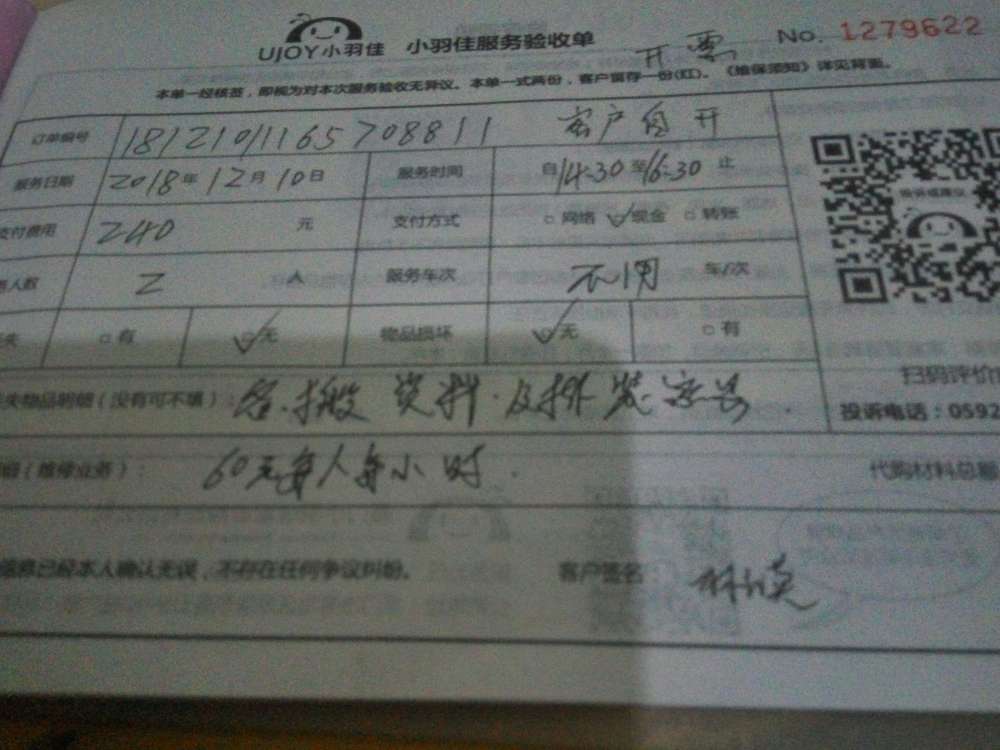 UJOY小羽佳 小羽佳服务验收单 No. 1279622
开票
本单一经核签，即视为对本次服务验收无异议。本单一式两份，客户留存一份(红)。《维保须知》详见背面。
订单编号 181210116570881 1 客户自开
服务日期 2018年12月10日 服务时间 自14:30至16:30止
支付费用 240 元 支付方式 网络 现金 转账
人数 2 人 服务车次 不用 车/次
失 有 无 物品损坏 无 有
失物品明细（没有可不填）： 搬资料
扫码评价
投诉电话：0592
（维修业务）： 60元每人每小时. 代购材料总额
已经本人确认无误，不存在任何争议纠纷。 客户签名 林